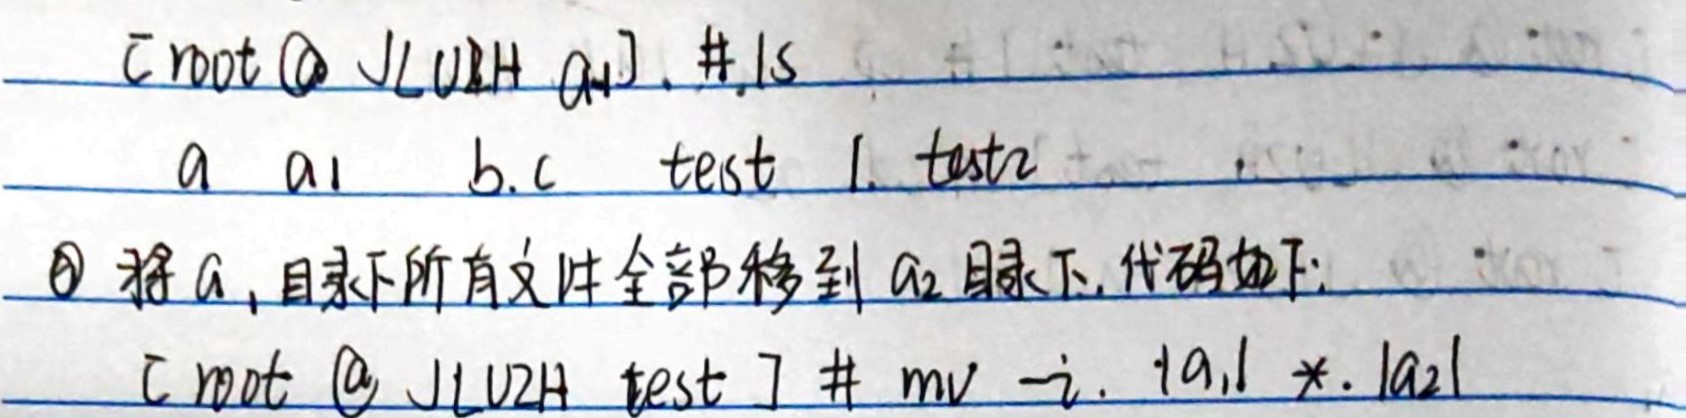 [root @ JLUZH a1]. #.ls
a a1 b.c test 1. test2
② 将a1目录下所有文件全部移到 a2 目录下. 代码如下:
[root @ JLUZH test ] # mv -i. /a1/ *. /a2/